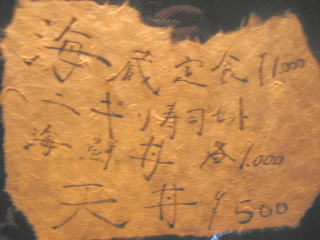 海蔵定食 ¥1,000
ニギリ寿司セット
海鮮丼 各1.000
天丼 ¥500